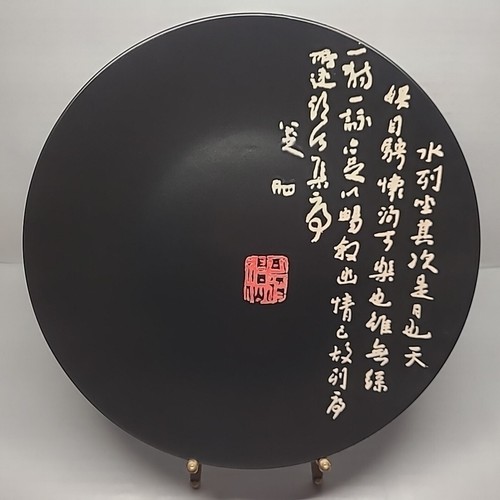 水列坐其次是日也天
娛目騁懷洵可樂也雖無絲
一觴一詠亦足以暢敘幽情已故列序
所述臨河集序